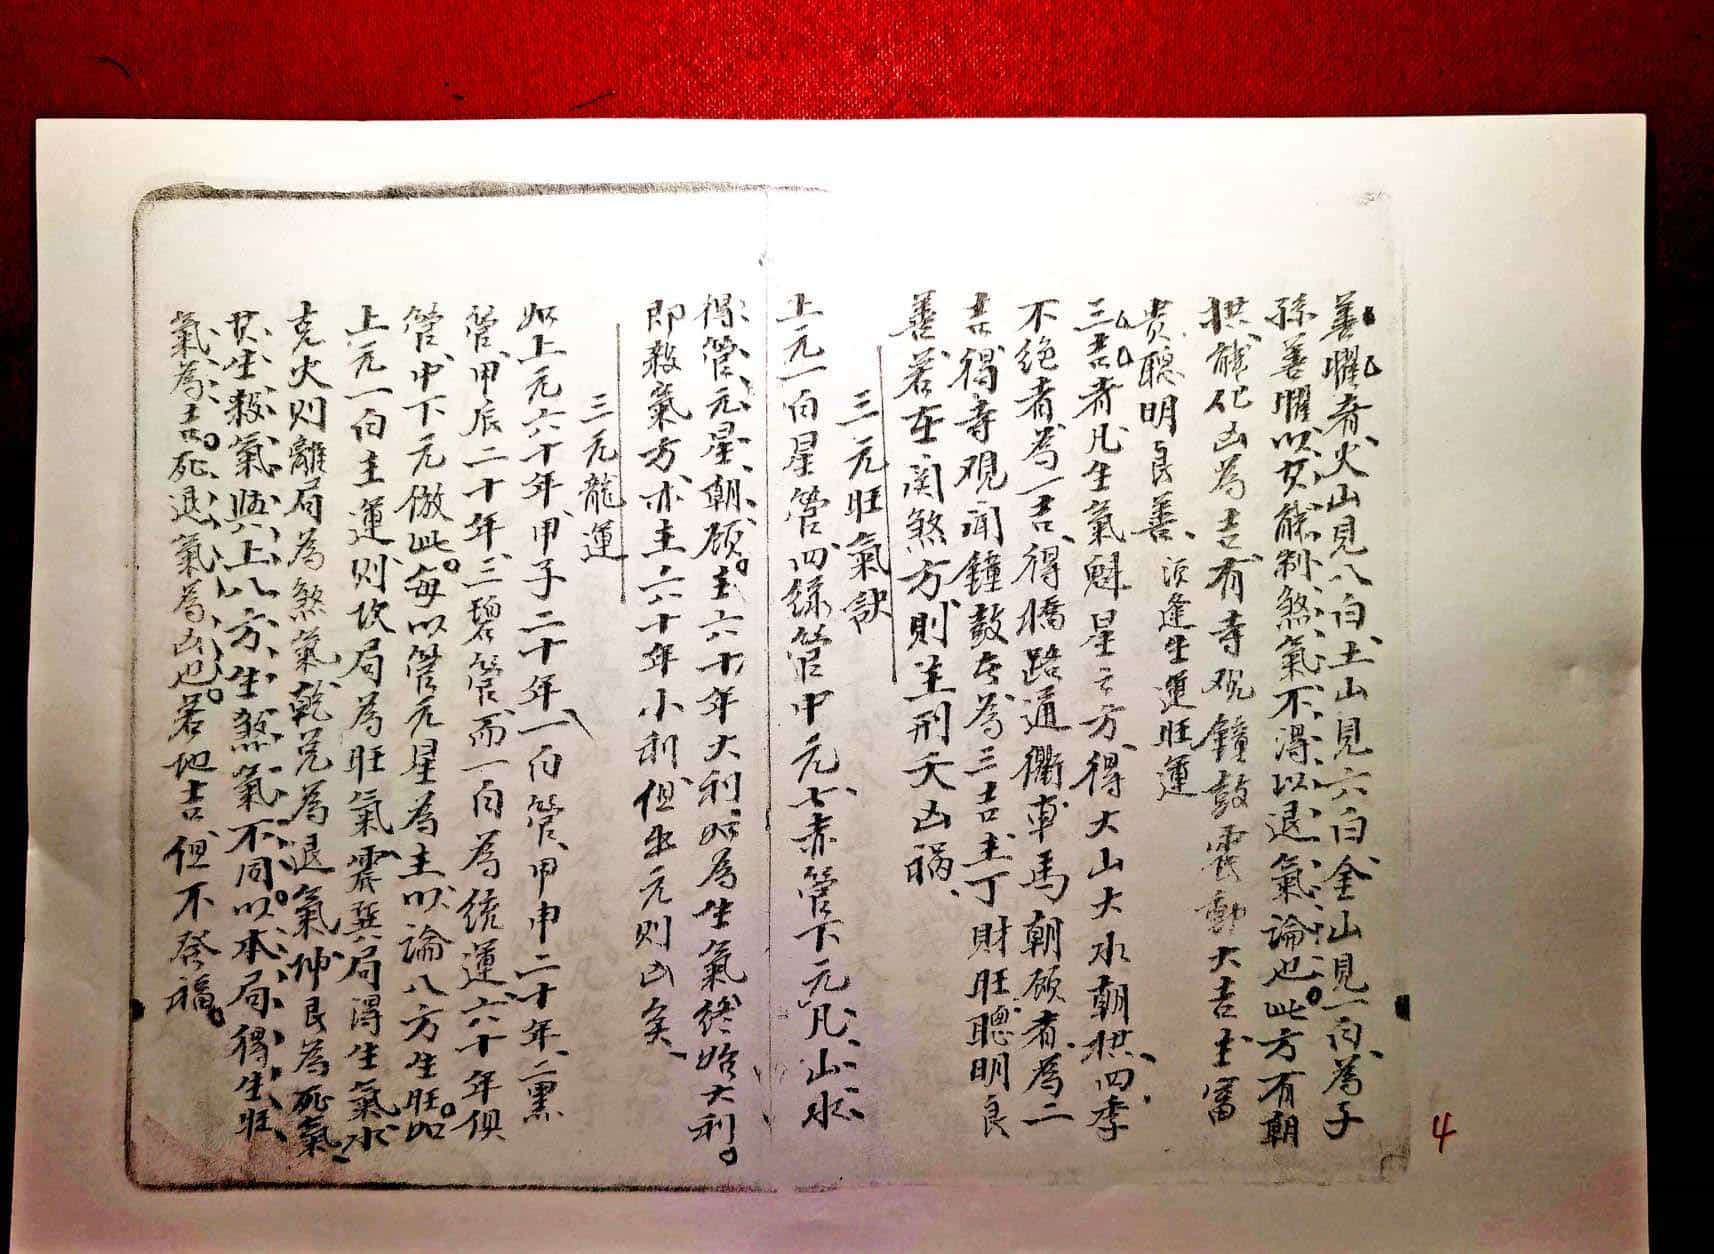 善曜者火山見八白土山見六白金山見一白為子
孫善曜以其能制煞氣不得以退氣論也此方有朝
拱能化凶為吉有寺观鐘鼓震動大吉主富
貴聰明良善須逢生運旺運
三吉者凡生氣魁星之方得大山大水朝拱四季
不絕者為一吉得橋路通衢車馬朝顾者為二
吉得寺观闻鐘鼓声為三吉主丁財旺聰明良
善若在関煞方則主刑夭凶禍
三元旺氣訣
上元一白星管四綠管中元七赤管下元凡山水
得管元星朝顾主六十年大利如為生氣終始大利
即殺氣方亦主六十年小利但出元則凶矣
三元龍運
如上元六十年甲子二十年一白管甲申二十年二黑
管甲辰二十年三碧管而一白為統運六十年俱
管中下元倣此每以管元星為主以論八方生旺如
上元一白主運則坎局為旺氣震巽局得生氣水
克火則離局為煞氣乾兌為退氣坤艮為死氣
其生殺氣與上八方生煞氣不同以本局得生旺
氣為吉死退氣為凶也若地吉但不發福
4